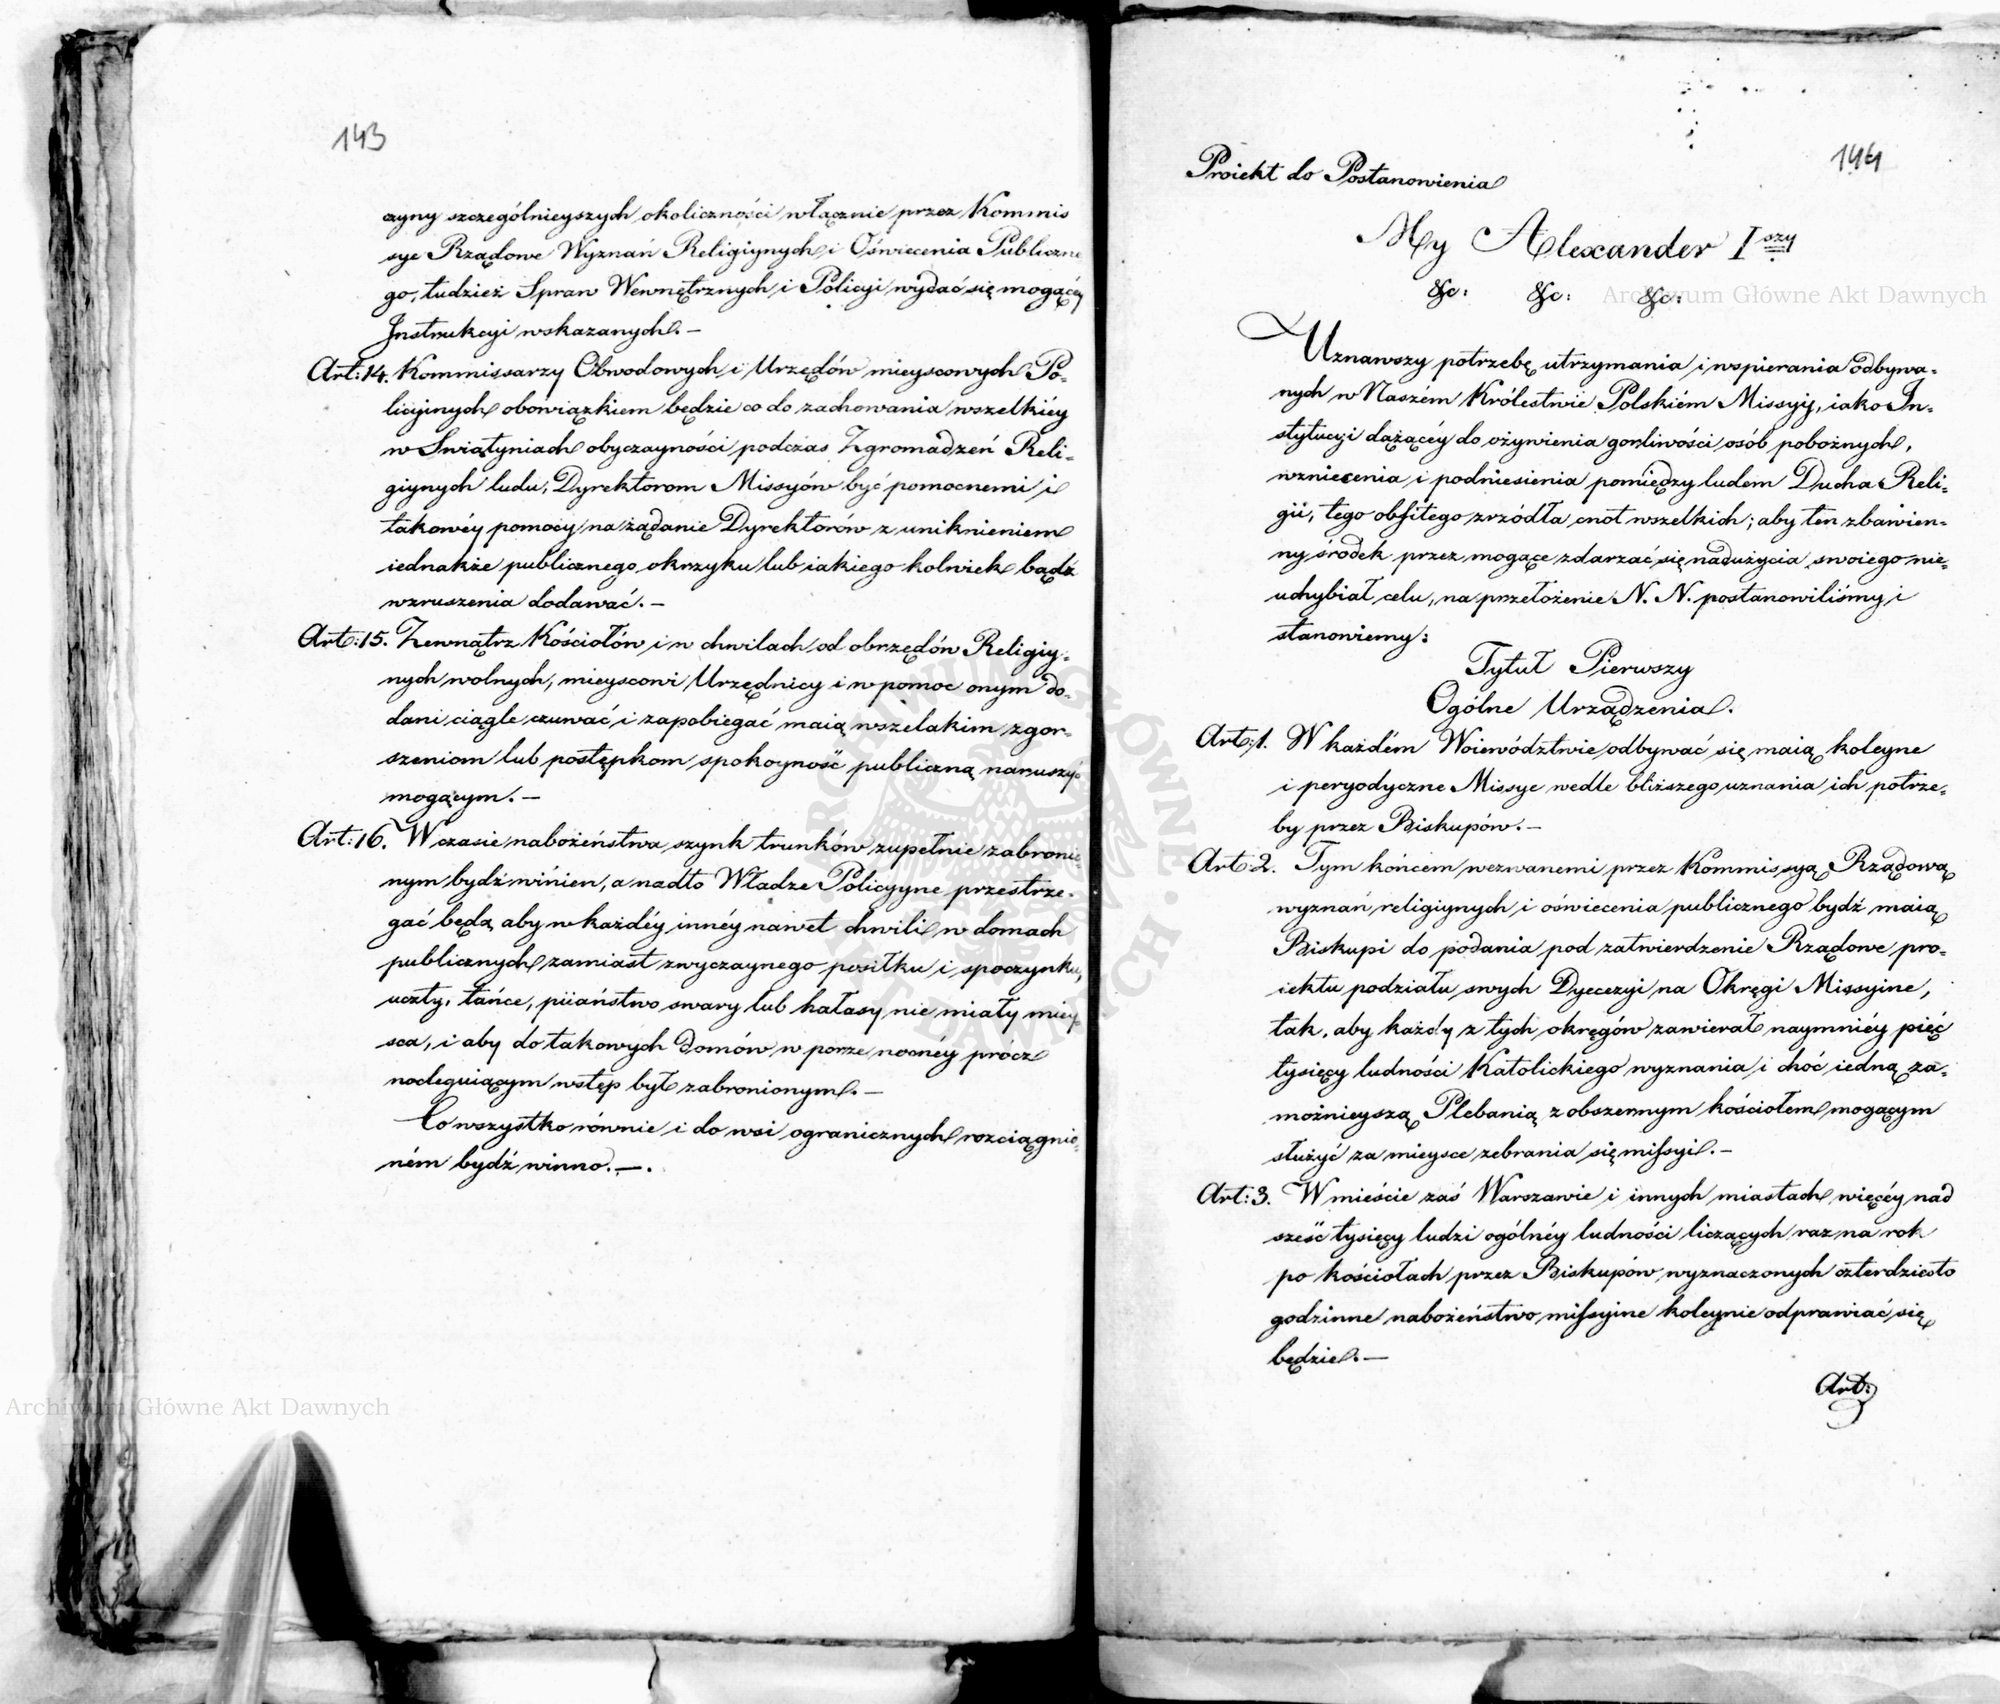 143
czyny szczególnieyszych okoliczności włącznie przez Kommis
sye Rządowe Wyznań Religiynych i Oświecenia Publiczne
go, tudzież Spraw Wewnętrznych i Policyi wydać się mogącéy
Instrukcyi wskazanych. —
Art: 14. Kommissarzy Obwodowych i Urzędów mieyscowych Po-
licyinych obowiązkiem będzie co do zachowania wszelkiéy
w Swiątyniach obyczayności podczas Zgromadzeń Reli-
giynych ludu, Dyrektorom Missyów być pomocnemi i
takowéy pomocy na żądanie Dyrektorów z uniknieniem
iednakże publicznego okrzyku lub iakiego kolwiek bądź
wzruszenia dodawać. —
Art: 15. Zewnątrz Kościołów i w chwilach od obrzędów Religiy-
nych wolnych, mieyscowi Urzędnicy i w pomoc onym do-
dani ciągle czuwać i zapobiegać maią wszelakim zgor-
szeniom lub postępkom spokoyność publiczną naruszyć
mogącym. —
Art: 16. W czasie nabożeństwa szynk trunków zupełnie zabronio
nym bydź winien, a nadto Władze Policyyne przestrze-
gać będą aby w każdéy innéy nawet chwili w domach
publicznych zamiast zwyczaynego posiłku i spoczynku,
uczty, tańce, piiaństwo swary lub hałasy nie miały miey-
sca, i aby do takowych domów w porze nocnéy prócz
nocleguiącym wstęp był zabronionym. —
Co wszystko równie i do wsi ogranicznych rozciągnio-
ném bydź winno. —.
144
Proiekt do Postanowienia
My Alexander I szy
&c: &c: &c:
Uznawszy potrzebę utrzymania i wspierania odbywa-
nych w Naszém Królestwie Polskiém Missyij, iako In-
stytucyi dążącéy do ożywienia gorliwości osób pobożnych,
wzniecenia i podniesienia pomiędzy ludem Ducha Reli-
gii, tego obfitego zrzódła cnot wszelkich; aby ten zbawien-
ny środek przez mogące zdarzać się nadużycia swoiego nie-
uchybiał celu, na przełożenie N. N. postanowiliśmy i
stanowiemy:
Tytuł Pierwszy
Ogólne Urządzenia.
Art: 1. W każdém Woiewództwie odbywać się maią koleyne
i peryodyczne Missye wedle bliższego uznania ich potrze-
by przez Biskupów. —
Art: 2. Tym końcem wezwanemi przez Kommissyą Rządową
wyznań religiynych i oświecenia publicznego bydź maią
Biskupi do podania pod zatwierdzenie Rządowe pro-
iektu podziału swych Dyecezyi na Okręgi Missyine,
tak, aby każdy z tych okręgów zawierał naymniéy pięć
tysięcy ludności Katolickiego wyznania i choć iedną za-
możnieyszą Plebanią z obszernym kościołem mogącym
służyć za mieysce zebrania się missyi. —
Art: 3. W mieście zaś Warszawie i innych miastach więcéy nad
sześć tysięcy ludzi ogólnéy ludności liczących raz na rok
po kościołach przez Biskupów wyznaczonych czterdziesto
godzinne nabożeństwo missyine koleynie odprawiać się
będzie. —
Art:
Archiwum Główne Akt Dawnych
Archiwum Główne Akt Dawnych
ARCHIWUM GŁÓWNE AKT DAWNYCH